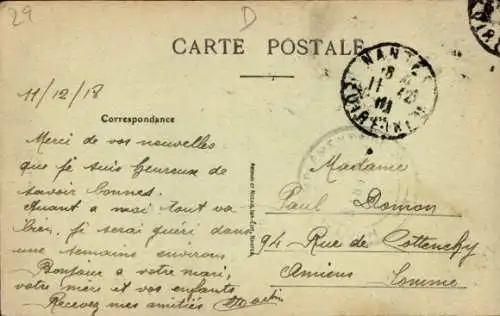 29
D
CARTE POSTALE
NANTES
11/12/18
Correspondance
Merci de vos nouvelles
que je suis heureux de
savoir bonnes.
Quant a moi tout va
bien, je serai guéri dans
une semaine environ
Bonjour a votre mari,
votre mère et vos enfants
Recevez mes amitiés
Madame
Paul Domon
94 Rue de Cottenchy
Amiens Somme